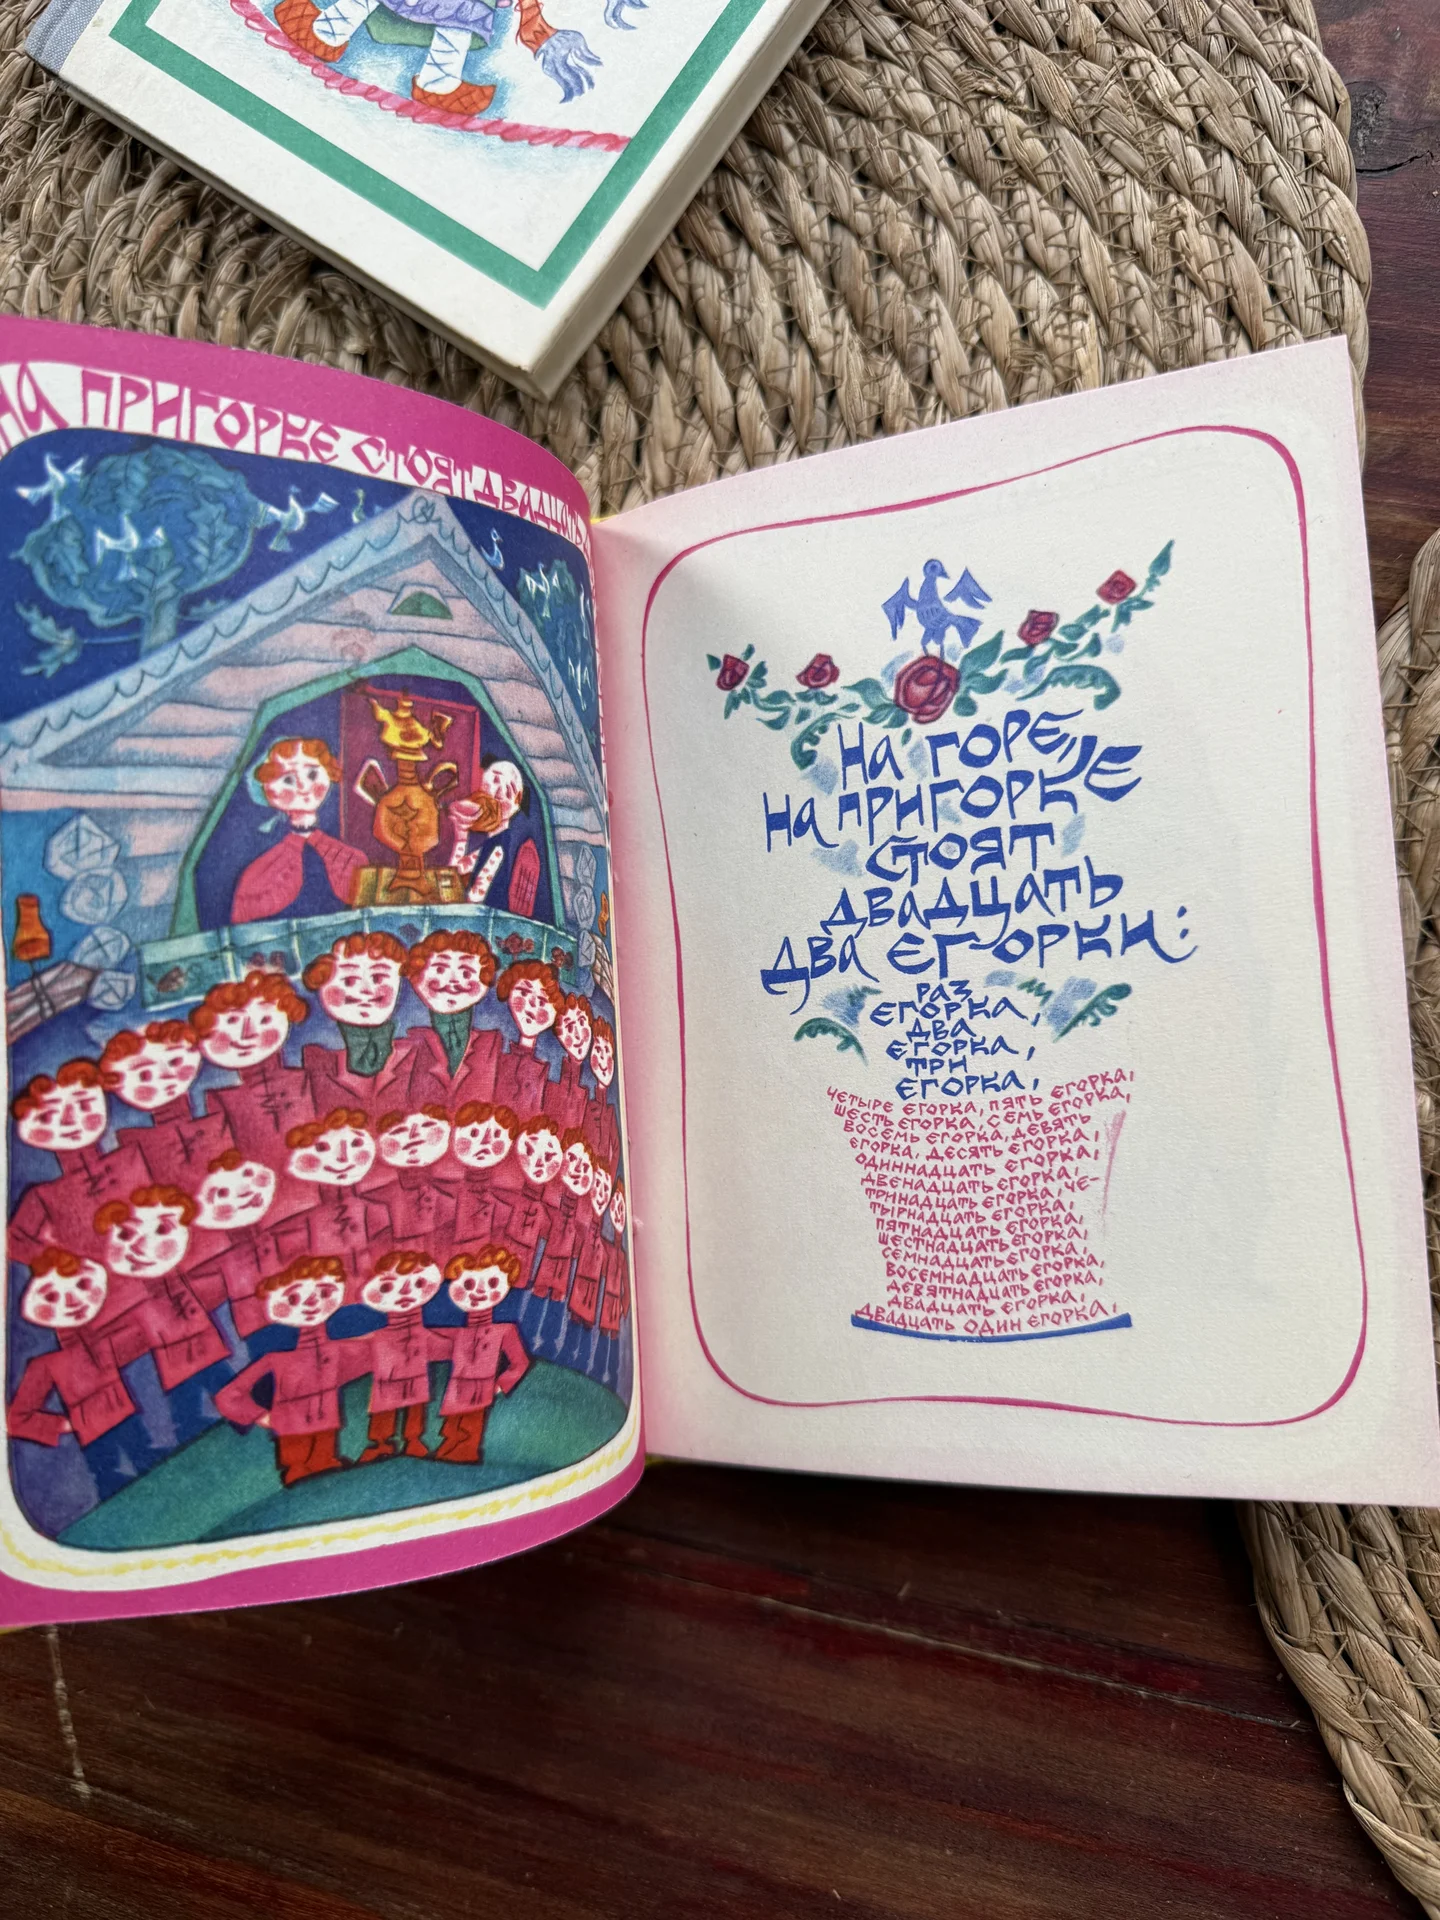 НА ПРИГОРКЕ СТОЯТ ДВАДЦАТЬ
НА ГОРЕ,
НА ПРИГОРКЕ
СТОЯТ
ДВАДЦАТЬ
ДВА ЕГОРКИ:
РАЗ
ЕГОРКА,
ДВА
ЕГОРКА,
ТРИ
ЕГОРКА,
ЧЕТЫРЕ ЕГОРКА, ПЯТЬ ЕГОРКА,
ШЕСТЬ ЕГОРКА, СЕМЬ ЕГОРКА,
ВОСЕМЬ ЕГОРКА, ДЕВЯТЬ
ЕГОРКА, ДЕСЯТЬ ЕГОРКА,
ОДИННАДЦАТЬ ЕГОРКА,
ДВЕНАДЦАТЬ ЕГОРКА,
ТРИНАДЦАТЬ ЕГОРКА, ЧЕ-
ТЫРНАДЦАТЬ ЕГОРКА,
ПЯТНАДЦАТЬ ЕГОРКА,
ШЕСТНАДЦАТЬ ЕГОРКА,
СЕМНАДЦАТЬ ЕГОРКА,
ВОСЕМНАДЦАТЬ ЕГОРКА,
ДЕВЯТНАДЦАТЬ ЕГОРКА,
ДВАДЦАТЬ ЕГОРКА,
ДВАДЦАТЬ ОДИН ЕГОРКА,